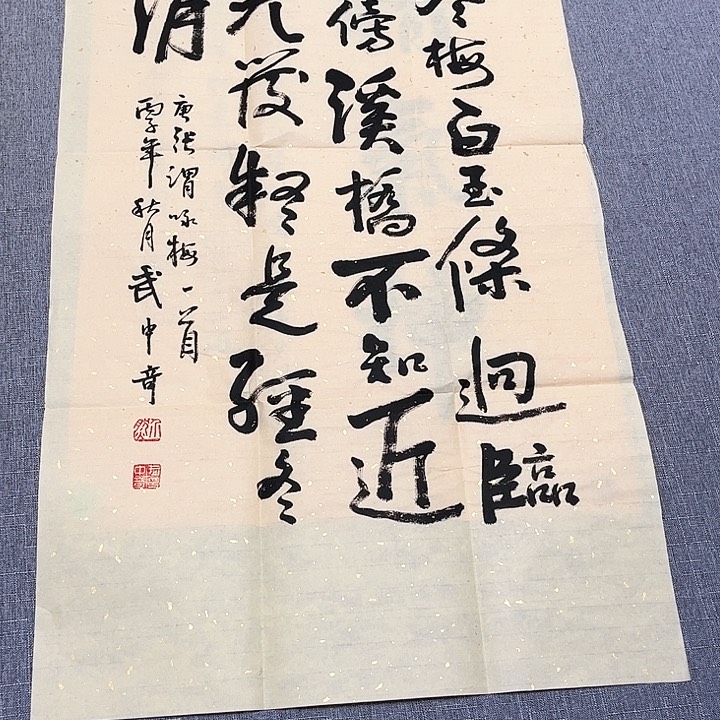 寒梅白玉條逈臨
傍溪橋不知近
先發疑是經冬
消
唐張謂咏梅一首
年秋月武中奇